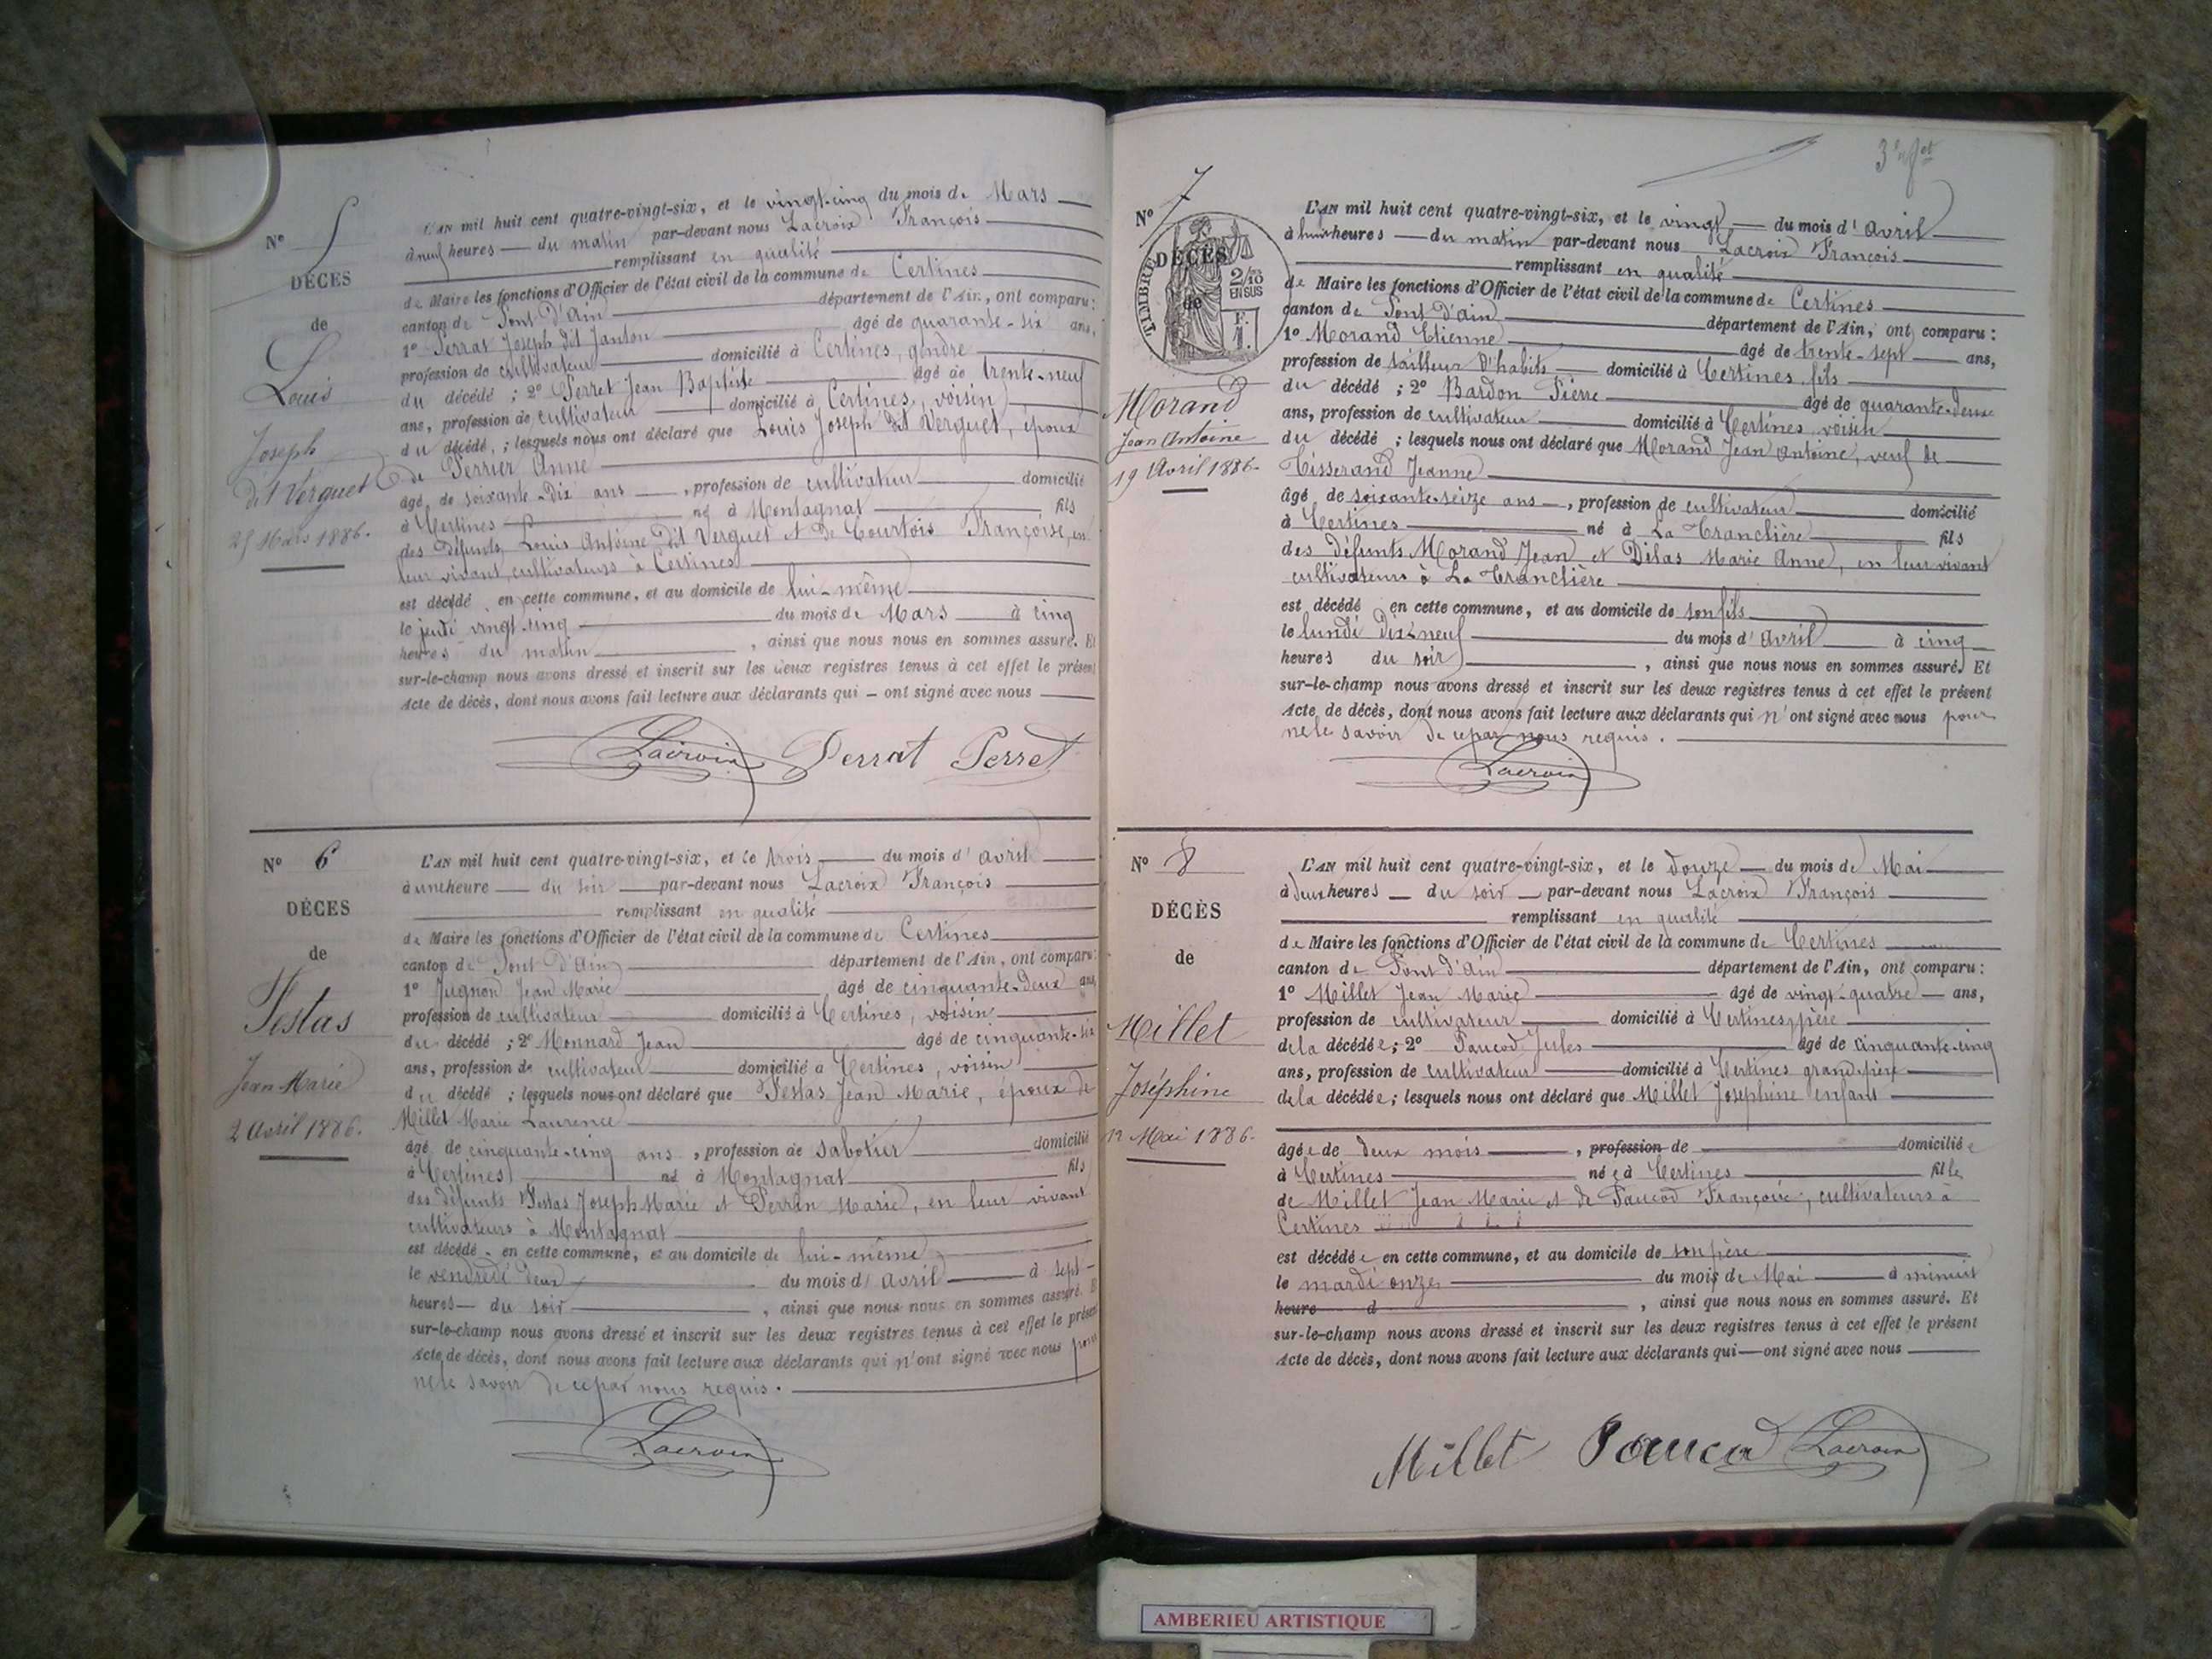 Nº 5
DÉCES
de
Louis
Joseph
dit Verguet
25 Mars 1886.
L'AN mil huit cent quatre-vingt-six, et le vingt-cinq du mois de Mars
à neuf heures du matin par-devant nous Lacroix François
remplissant en qualité
de Maire les fonctions d'Officier de l'état civil de la commune de Certines
canton de Pont d'Ain département de l'Ain, ont comparu :
1º Perrat Joseph dit Janton âgé de quarante-six ans,
profession de cultivateur domicilié à Certines, gendre
du décédé ; 2º Perret Jean Baptiste âgé de trente-neuf
ans, profession de cultivateur domicilié à Certines, voisin
du décédé, ; lesquels nous ont déclaré que Louis Joseph dit Verguet, époux
de Perrier Anne
âgé de soixante-dix ans, profession de cultivateur domicilié
à Certines né à Montagnat fils
des défunts Louis Antoine dit Verguet et de Courtois Françoise, en
leur vivant cultivateurs à Certines
est décédé en cette commune, et au domicile de lui-même
le jeudi vingt-cinq du mois de Mars à cinq
heures du matin, ainsi que nous nous en sommes assuré. Et
sur-le-champ nous avons dressé et inscrit sur les deux registres tenus à cet effet le présent
Acte de décès, dont nous avons fait lecture aux déclarants qui – ont signé avec nous
Lacroix Perrat Perret
Nº 6
DÉCES
de
Testas
Jean Marie
2 Avril 1886.
L'AN mil huit cent quatre-vingt-six, et le trois du mois d'avril
à une heure du soir par-devant nous Lacroix François
remplissant en qualité
de Maire les fonctions d'Officier de l'état civil de la commune de Certines
canton de Pont d'Ain département de l'Ain, ont comparu :
1º Jugnon Jean Marie âgé de cinquante-deux ans,
profession de cultivateur domicilié à Certines, voisin
du décédé ; 2º Monnard Jean âgé de cinquante-six
ans, profession de cultivateur domicilié à Certines, voisin
du décédé ; lesquels nous ont déclaré que Testas Jean Marie, époux de
Millet Marie Laurence
âgé de cinquante-cinq ans, profession de sabotier domicilié
à Certines né à Montagnat fils
des défunts Testas Joseph Marie et Perrin Marie, en leur vivant
cultivateurs à Montagnat
est décédé en cette commune, et au domicile de lui-même
le vendredi deux du mois d'avril à sept
heures du soir, ainsi que nous nous en sommes assuré. Et
sur-le-champ nous avons dressé et inscrit sur les deux registres tenus à cet effet le présent
Acte de décès, dont nous avons fait lecture aux déclarants qui n'ont signé avec nous pour
ne le savoir de ce par nous requis.
Lacroix
Nº 7
TIMBRE
2/10
EN SUS
F.
1.
DÉCÈS
de
Morand
Jean Antoine
19 Avril 1886.
L'AN mil huit cent quatre-vingt-six, et le vingt du mois d'avril
à huit heures du matin par-devant nous Lacroix François
remplissant en qualité
de Maire les fonctions d'Officier de l'état civil de la commune de Certines
canton de Pont d'Ain département de l'Ain, ont comparu :
1º Morand Etienne âgé de trente-sept ans,
profession de tailleur d'habits domicilié à Certines, fils
du décédé ; 2º Bardon Pierre âgé de quarante-deux
ans, profession de cultivateur domicilié à Certines, voisin
du décédé ; lesquels nous ont déclaré que Morand Jean Antoine, veuf de
Tisserand Jeanne
âgé de soixante-seize ans, profession de cultivateur domicilié
à Certines né à La Tranclière fils
des défunts Morand Jean et Dilas Marie Anne, en leur vivant
cultivateurs à La Tranclière
est décédé en cette commune, et au domicile de son fils
le lundi dix-neuf du mois d'avril à cinq
heures du soir, ainsi que nous nous en sommes assuré. Et
sur-le-champ nous avons dressé et inscrit sur les deux registres tenus à cet effet le présent
Acte de décès, dont nous avons fait lecture aux déclarants qui n'ont signé avec nous pour
ne le savoir de ce par nous requis.
Lacroix
Nº 8
DÉCÈS
de
Millet
Joséphine
12 Mai 1886.
L'AN mil huit cent quatre-vingt-six, et le douze du mois de Mai
à deux heures du soir par-devant nous Lacroix François
remplissant en qualité
de Maire les fonctions d'Officier de l'état civil de la commune de Certines
canton de Pont d'Ain département de l'Ain, ont comparu :
1º Millet Jean Marie âgé de vingt-quatre ans,
profession de cultivateur domicilié à Certines, père
de la décédée ; 2º Paucod Jules âgé de cinquante-cinq
ans, profession de cultivateur domicilié à Certines grand-père
de la décédée ; lesquels nous ont déclaré que Millet Joséphine enfant
âgée de deux mois, profession de domiciliée
à Certines née à Certines fille
de Millet Jean Marie et de Paucod Françoise, cultivateurs à
Certines
est décédée en cette commune, et au domicile de son père
le mardi onze du mois de Mai à minuit
heure d, ainsi que nous nous en sommes assuré. Et
sur-le-champ nous avons dressé et inscrit sur les deux registres tenus à cet effet le présent
Acte de décès, dont nous avons fait lecture aux déclarants qui — ont signé avec nous
Millet Paucod Lacroix
AMBERIEU ARTISTIQUE